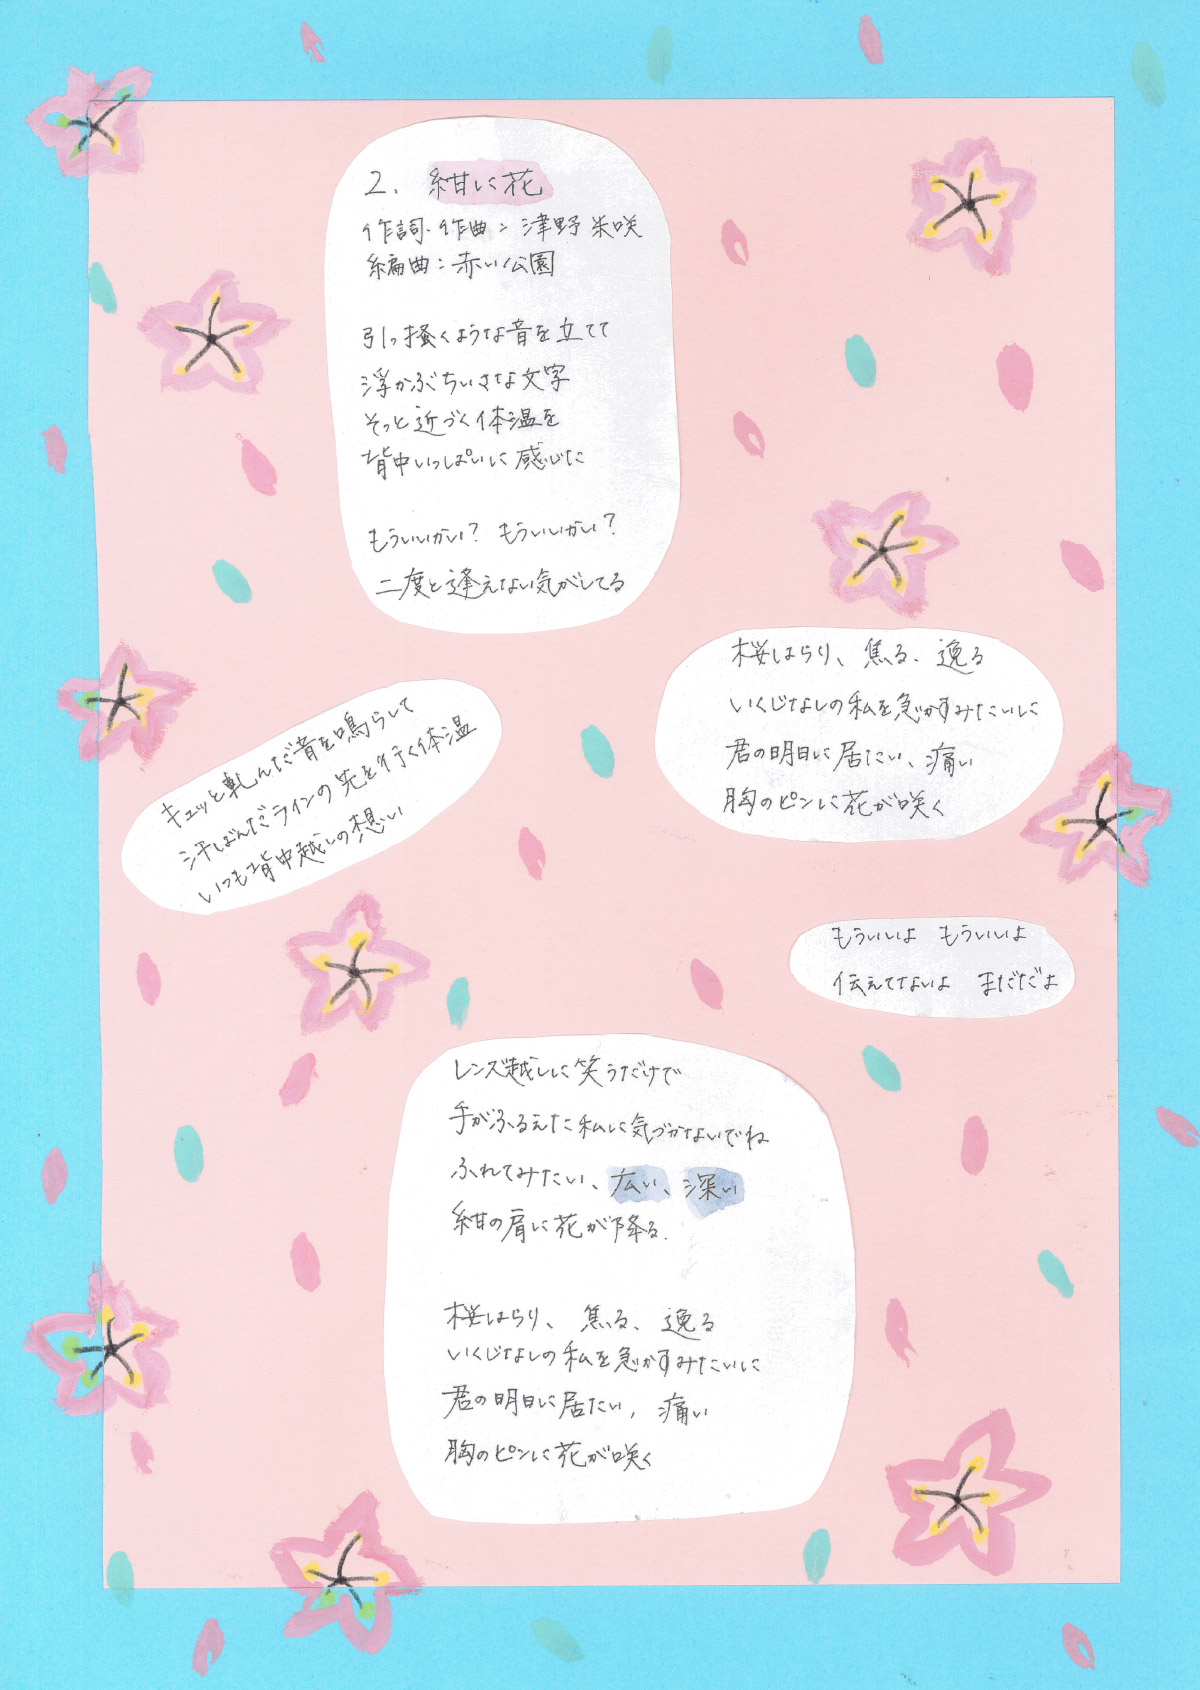 2. 紺に花
作詞・作曲：津野米咲
編曲：赤い公園
引っ掻くような音を立てて
浮かぶちいさな文字
そっと近づく体温を
背中いっぱいに感じた
もういいかい？ もういいかい？
二度と逢えない気がしてる
桜はらり、焦る、逸る
いくじなしの私を急かすみたいに
君の明日に居たい、痛い
胸のピンに花が咲く
キュッと軋んだ音を鳴らして
汗ばんだラインの先を行く体温
いつも背中越しの想い
もういいよ もういいよ
伝えてないよ まだだよ
レンズ越しに笑うだけで
手がふるえた私に気づかないでね
ふれてみたい、広い、深い
紺の肩に花が降る
桜はらり、焦る、逸る
いくじなしの私を急かすみたいに
君の明日に居たい、痛い
胸のピンに花が咲く